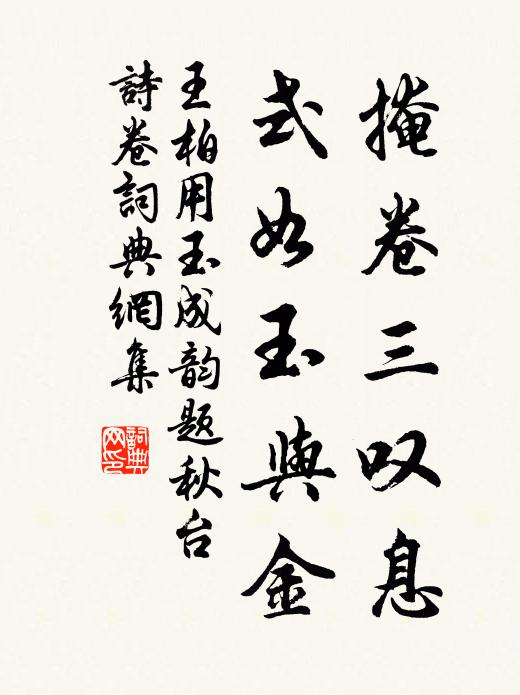 掩卷三叹息
式如玉與金
王柏用玉成韵题秋台
詩卷詞典網集
詞典网印